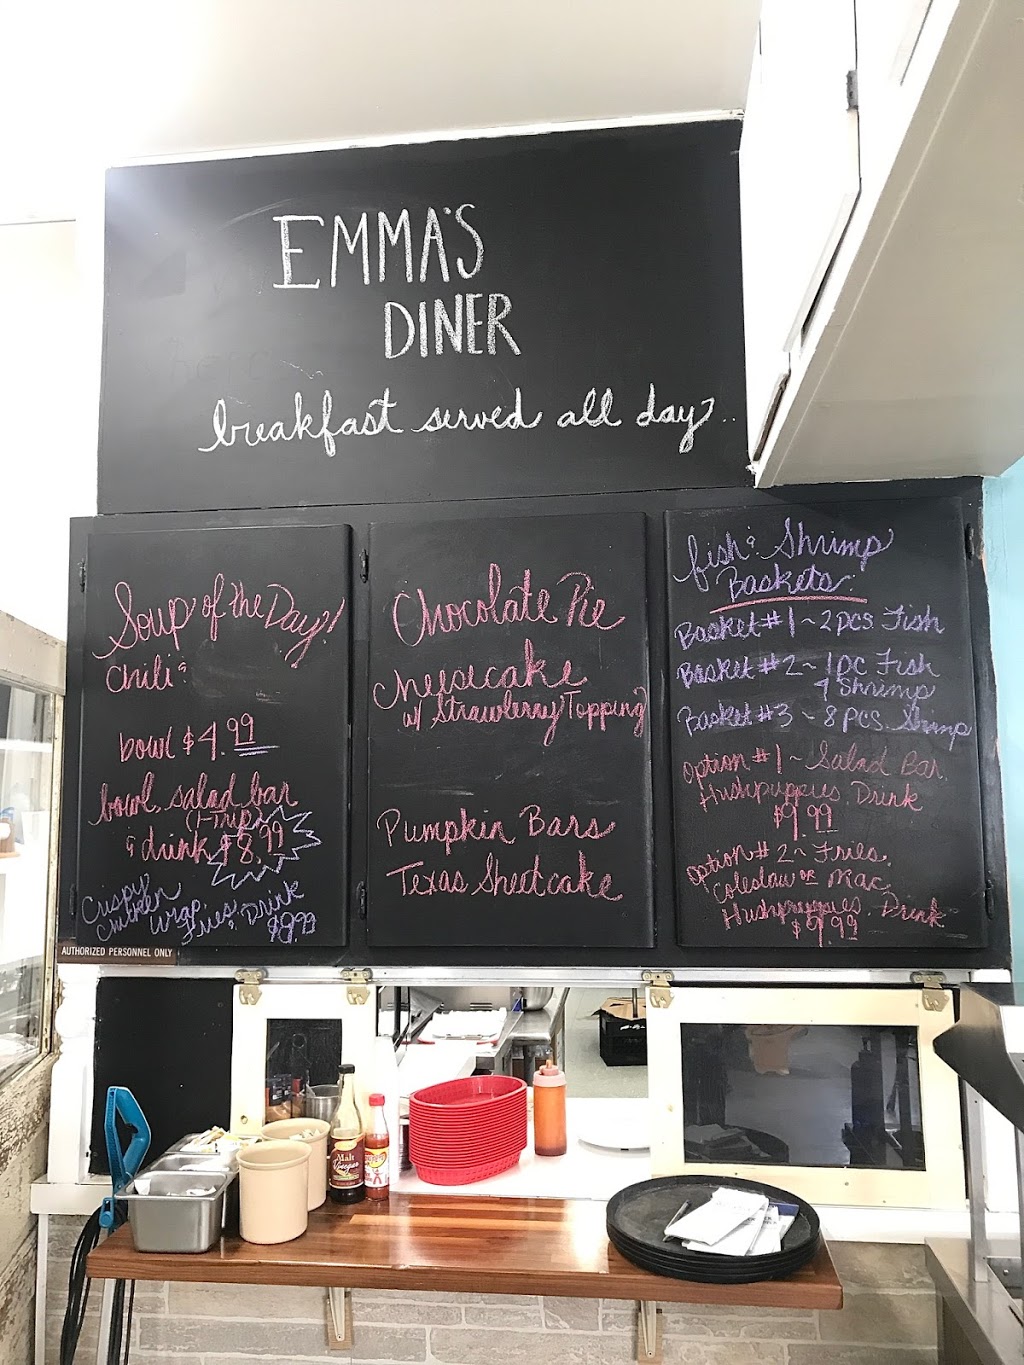 EMMA'S
DINER
breakfast served all day..
Soup of the Day!
Chili &
bowl $4.99
bowl, salad bar
(1-Trip)
& drink $8.99
Crispy
Chicken
Wrap,
Fries, Drink
$8.99
AUTHORIZED PERSONNEL ONLY
Chocolate Pie
Cheesecake
w/ Strawberry Topping
Pumpkin Bars
Texas Sheetcake
fish & Shrimp
Baskets
Basket #1 ~ 2 pcs Fish
Basket #2 ~ 1 pc Fish
4 Shrimp
Basket #3 ~ 8 pcs Shrimp
Option #1 ~ Salad Bar,
Hushpuppies, Drink
$9.99
Option #2 ~ Fries,
Coleslaw or Mac,
Hushpuppies, Drink
$9.99
Malt
Vinegar